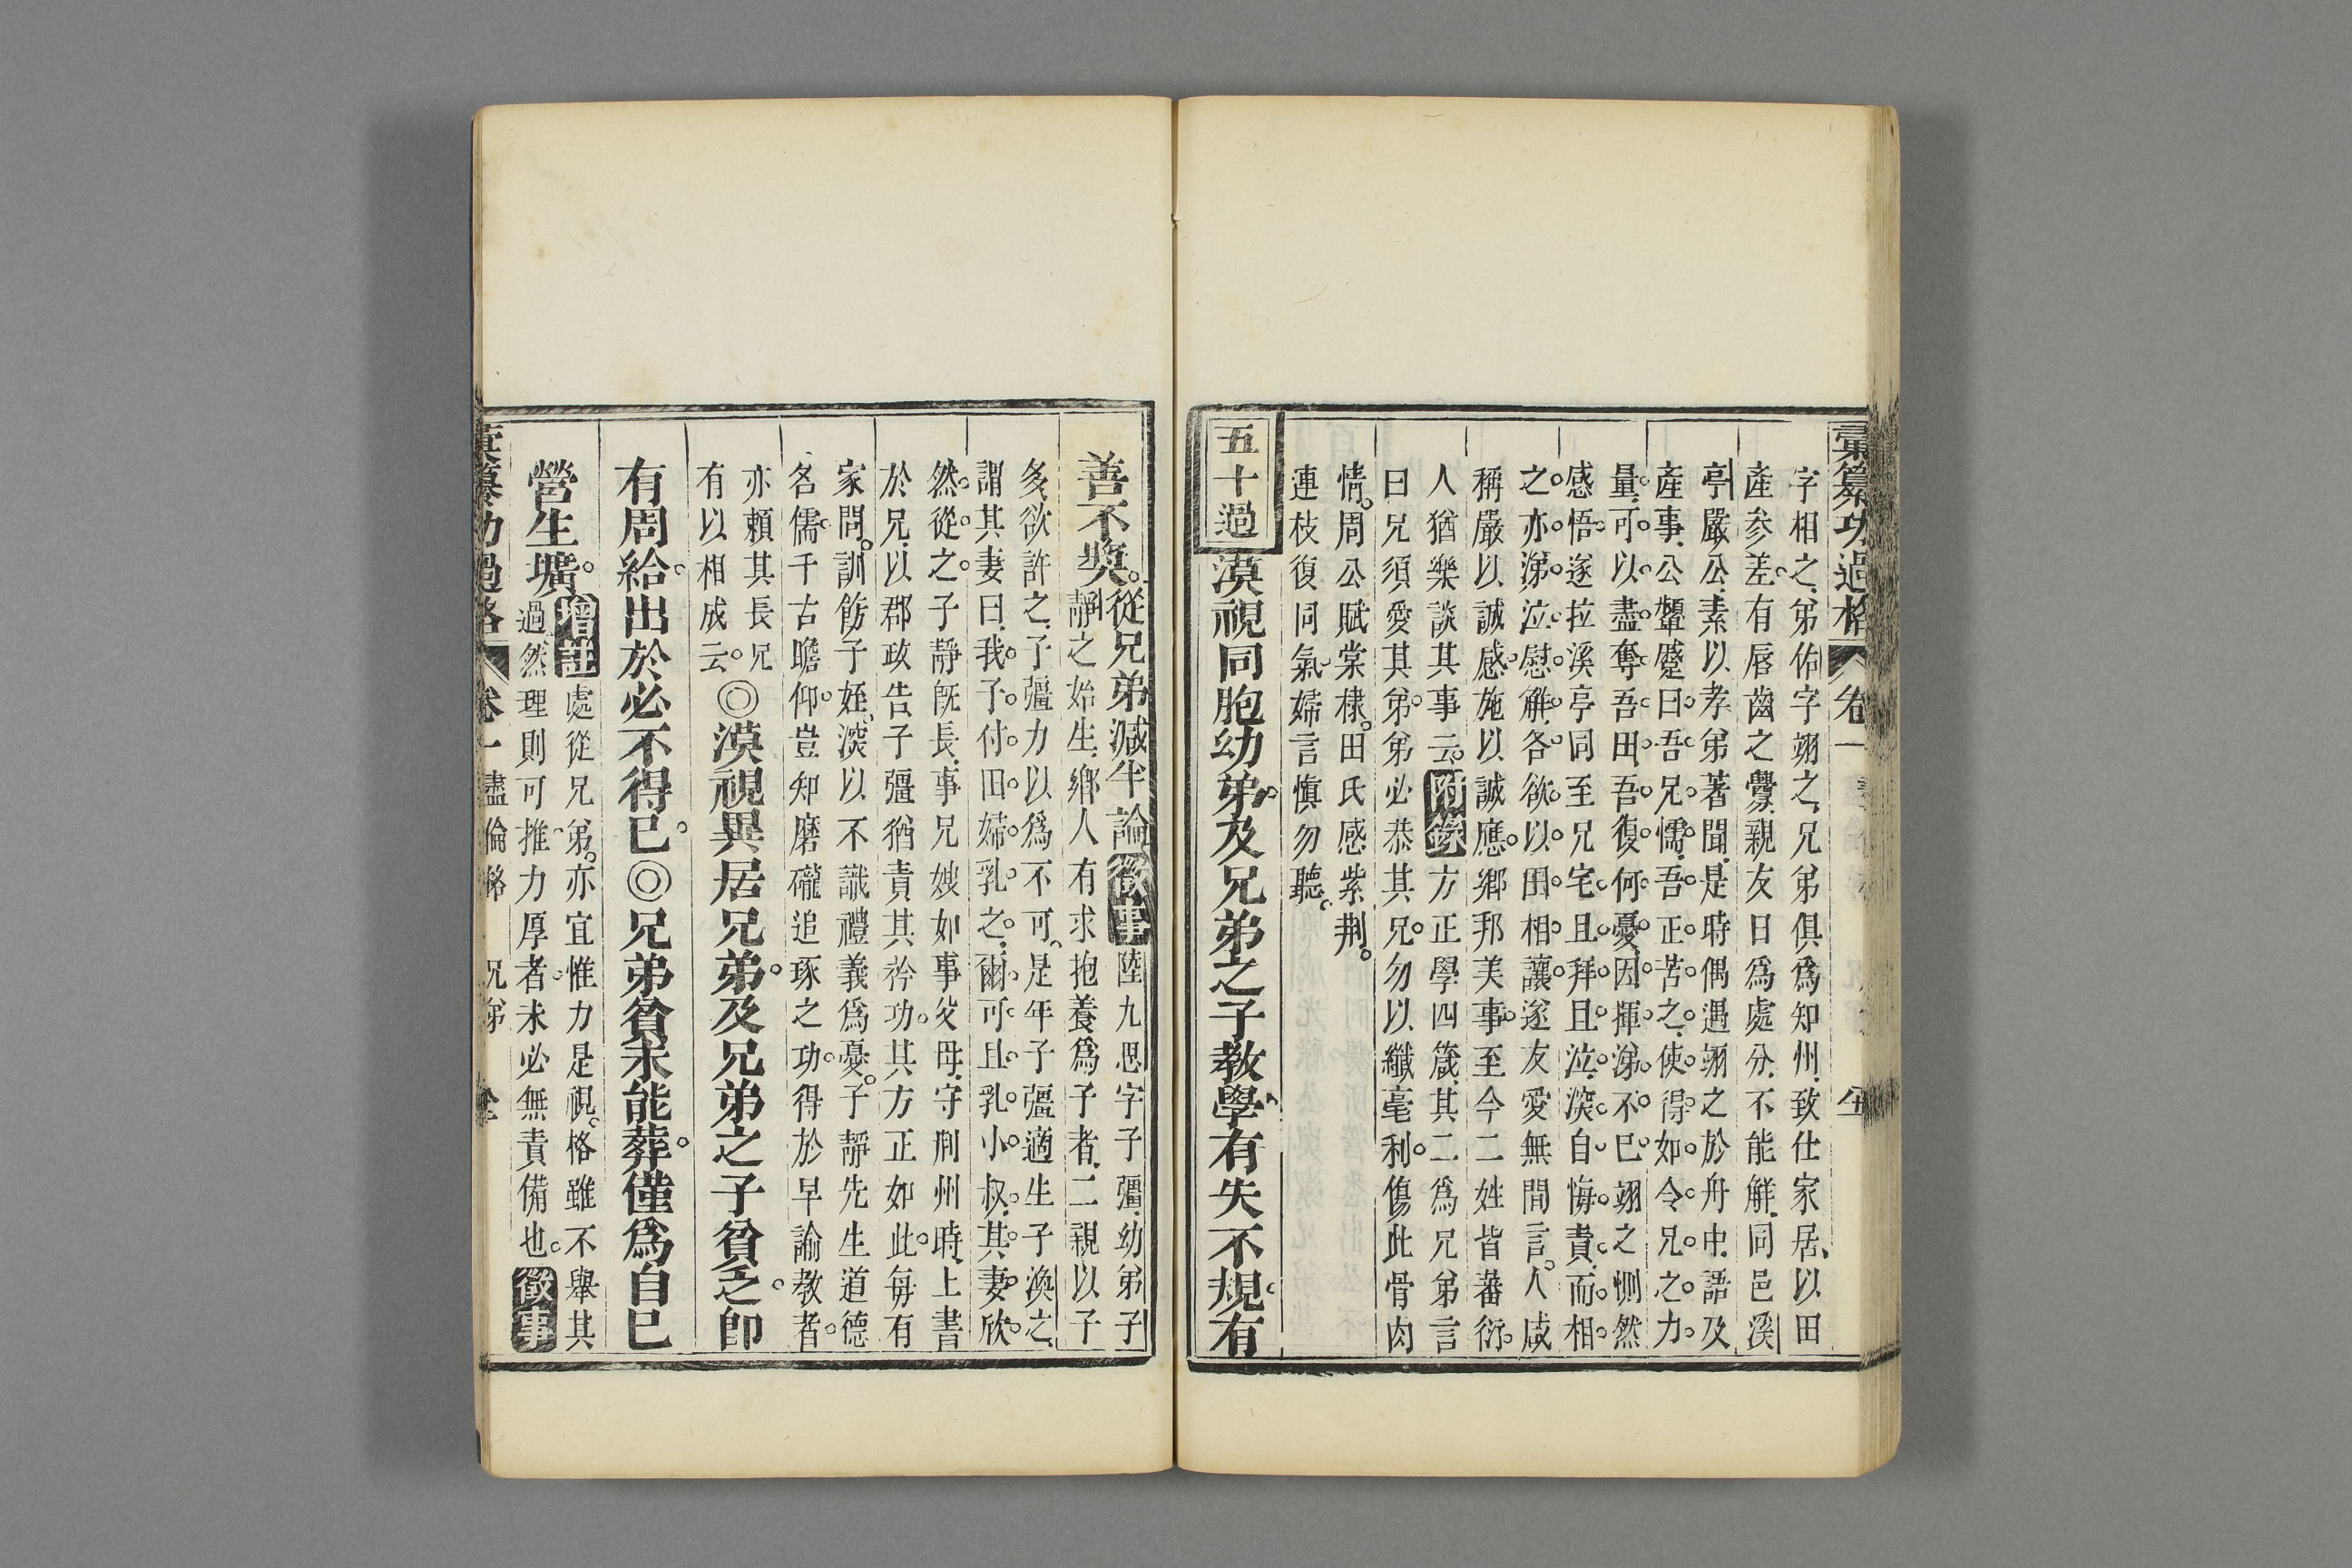 彙纂功過格 卷一
字相之弟佑字翊之兄弟俱爲知州致仕家居以田
產參差有唇齒之釁親友日爲處分不能解同邑溪
亭嚴公素以孝弟著聞是時偶遇翊之於舟中語及
產事公顰蹙曰吾兄懦吾正苦之使得如令兄之力
量可以盡奪吾田吾復何憂因揮涕不已翊之惻然
感悟遂拉溪亭同至兄宅且拜且泣深自悔責而相
之亦涕泣慰解各欲以田相讓遂友愛無間言人咸
稱嚴以誠感施以誠應鄉邦美事至今二姓皆蕃衍
人猶樂談其事云附錄方正學四箴其二爲兄弟言
曰兄須愛其弟弟必恭其兄勿以纖毫利傷此骨肉
情周公賦棠棣田氏感紫荆
連枝復同氣婦言愼勿聽
五十過漠視同胞幼弟及兄弟之子教學有失不規有
善不奬從兄弟減半論徵事陸九思字子彊幼弟子
靜之始生鄉人有求抱養爲子者二親以子
多欲許之子彊力以爲不可是年子彊適生子渙之
謂其妻曰我子付田婦乳之爾可且乳小叔其妻欣
然從之子靜旣長事兄嫂如事父母守荆州時上書
於兄以郡政告子彊猶責其矜功其方正如此每有
家問訓飭子姪深以不識禮義爲憂子靜先生道德
名儒千古瞻仰豈知磨礲追琢之功得於早諭教者
亦賴其長兄
有以相成云◎漠視異居兄弟及兄弟之子貧乏卽
有周給出於必不得已◎兄弟貧未能葬僅爲自已
營生壙增註處從兄弟亦宜惟力是視格雖不舉其
過然理則可推力厚者未必無責備也徵事
彙纂功過格 卷一 盡倫格 兄弟